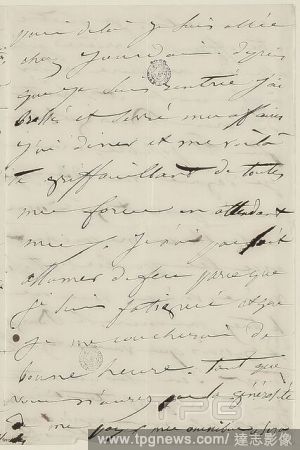 je suis allée
chez Jourdain. Depuis
que je suis rentrée j'ai
brossé et serré mes affaires
j'ai diner et me voilà
te griffouillant de toutes
mes forces en attendant
mie
allumer de feu parce que
je suis fatiguée et que
je me coucherai de
bonne heure. tant que
vous n'aurez pas la générosité
de me payer mes omnibus
PG
www.tpgnews.com/達志影像